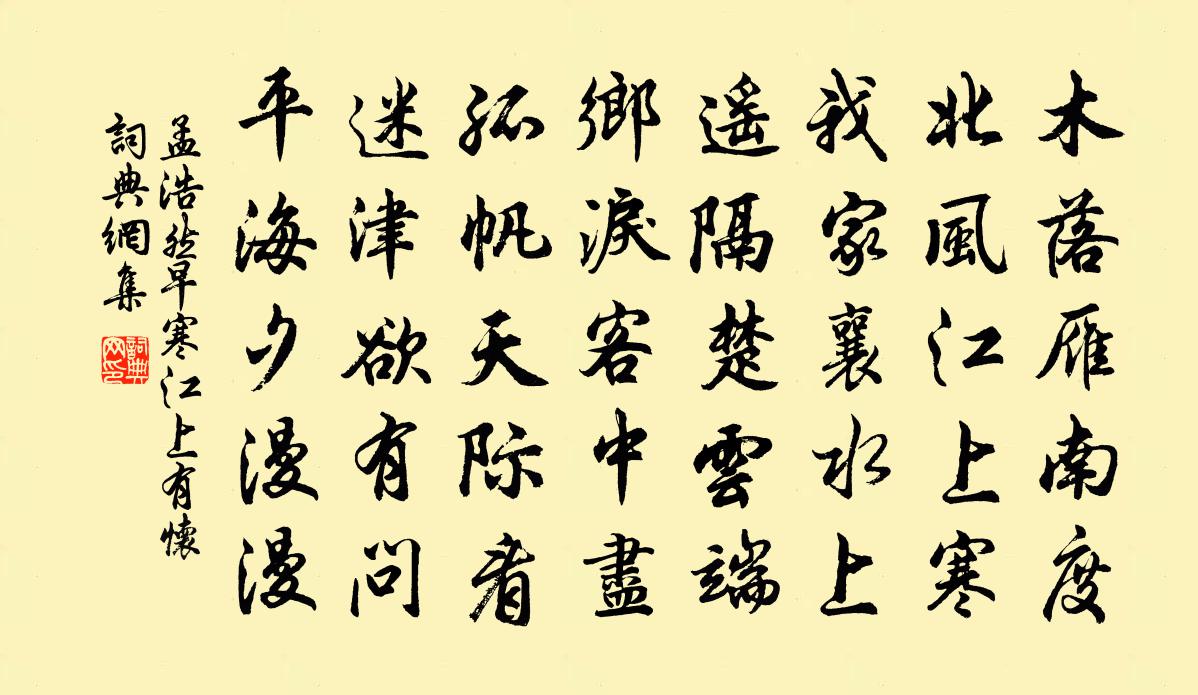 木落雁南度
北風江上寒
我家襄水上
遥隔楚雲端
鄉淚客中盡
孤帆天际看
迷津欲有問
平海夕漫漫
孟浩然早寒江上有懷
詞典網集
詞典網印